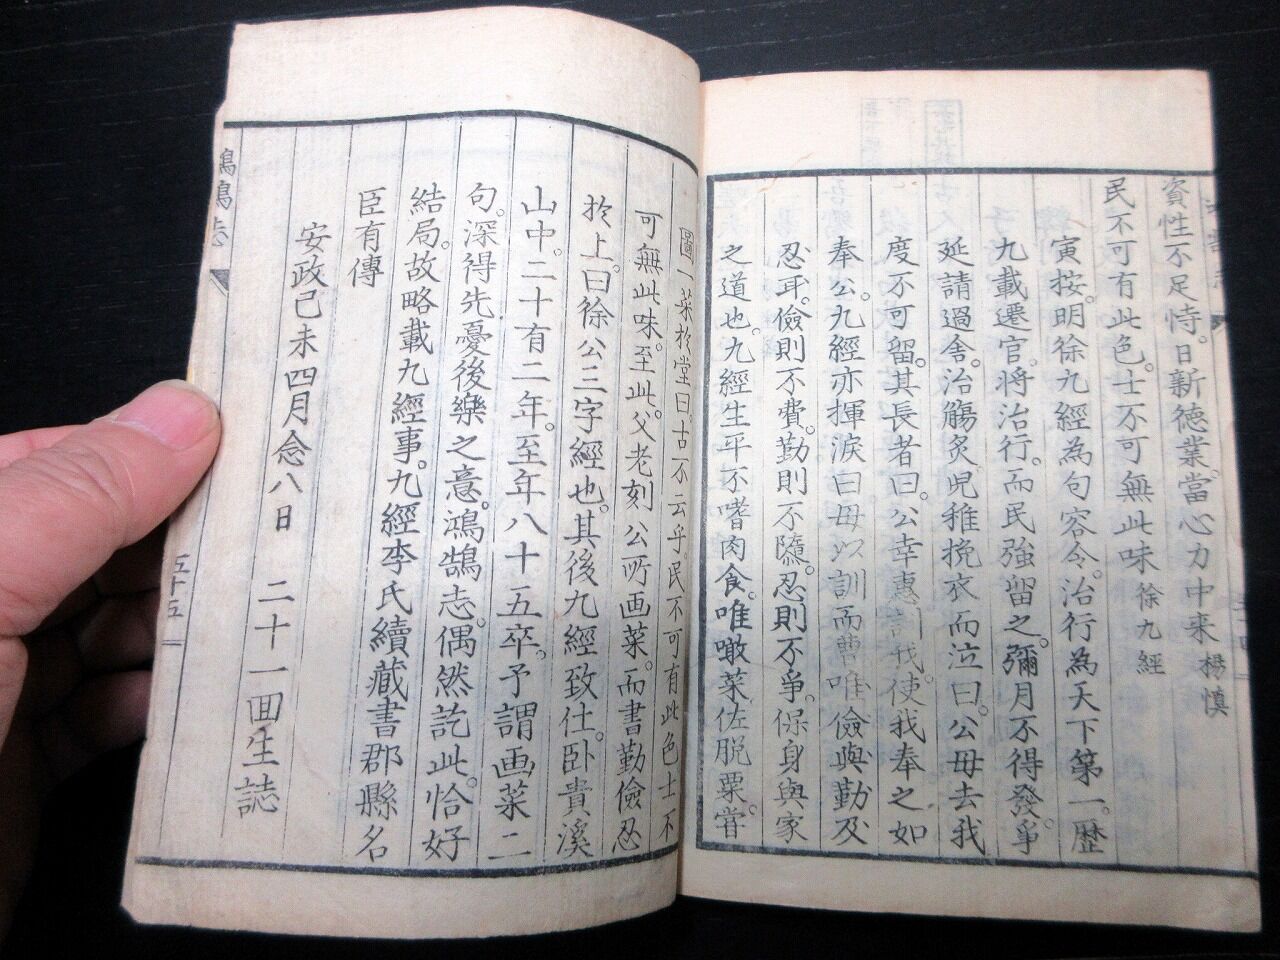 資性不足恃。日新德業。當心力中来 楊慎
民不可有此色。士不可無此味 徐九經
寅按。明徐九經為句容令。治行為天下第一。歷
九載遷官。將治行。而民強留之。彌月不得發。爭
延請過舎。治觴炙。児稚挽衣而泣曰。公毋去我
度不可留。其長者曰。公幸惠訓我。使我奉之如
奉公。九經亦揮淚曰。毋以訓而曹。唯儉與勤及
忍耳。儉則不費。勤則不隳。忍則不爭。保身與家
之道也。九經生平不嗜肉食。唯噉菜佐脱粟。甞
圖一菜於堂曰。古不云乎。民不可有此色士不
可無此味。至此。父老刻公所画菜。而書勤儉忍
於上。曰徐公三字經也。其後九經致仕。卧貴溪
山中。二十有二年。至年八十五卒。予謂画菜二
句。深得先憂後樂之意。鴻鵠志。偶然訖此。恰好
結局。故略載九經事。九經李氏續藏書郡縣名
臣有傳
安政己未四月念八日 二十一回生誌
鴻鵠志
五十五